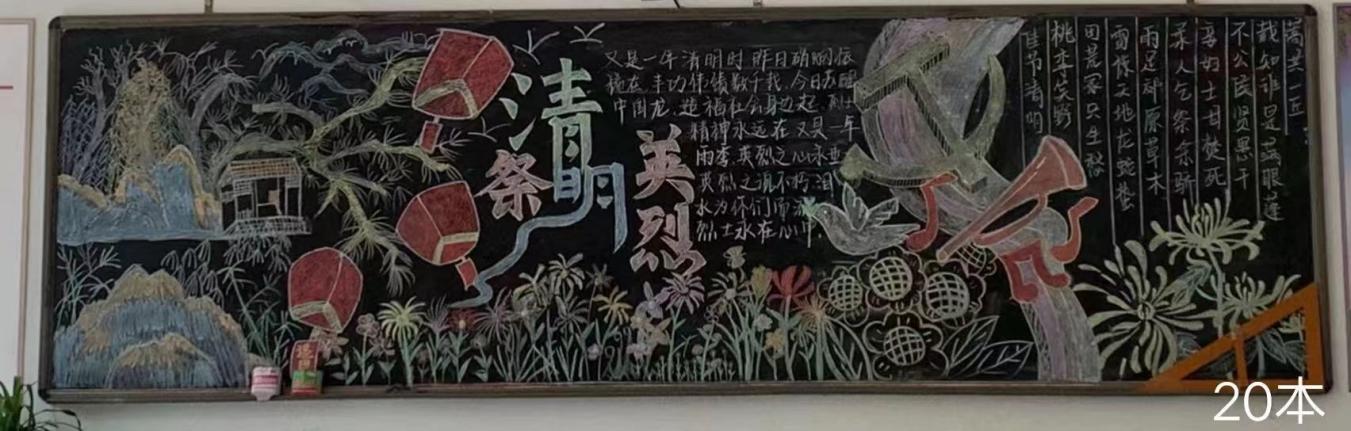 祭
清明
英烈
又是一年清明时 昨日硝烟依
稀在 丰功伟绩数千载.今日苏醒
中国龙.造福社会身边起.烈士
精神永远在 又是一年
雨季.英烈之心永垂
英烈之魂不朽 泪
水为你们而流
烈士永在心中.
佳节清明
桃李笑野
田荒冢只生愁
雷惊天地龙蛇蛰
雨足郊原草木
柔人乞祭余骄
妾妇士甘焚死
不公侯贤愚千
载知谁是满眼蓬
蒿共一丘
20本